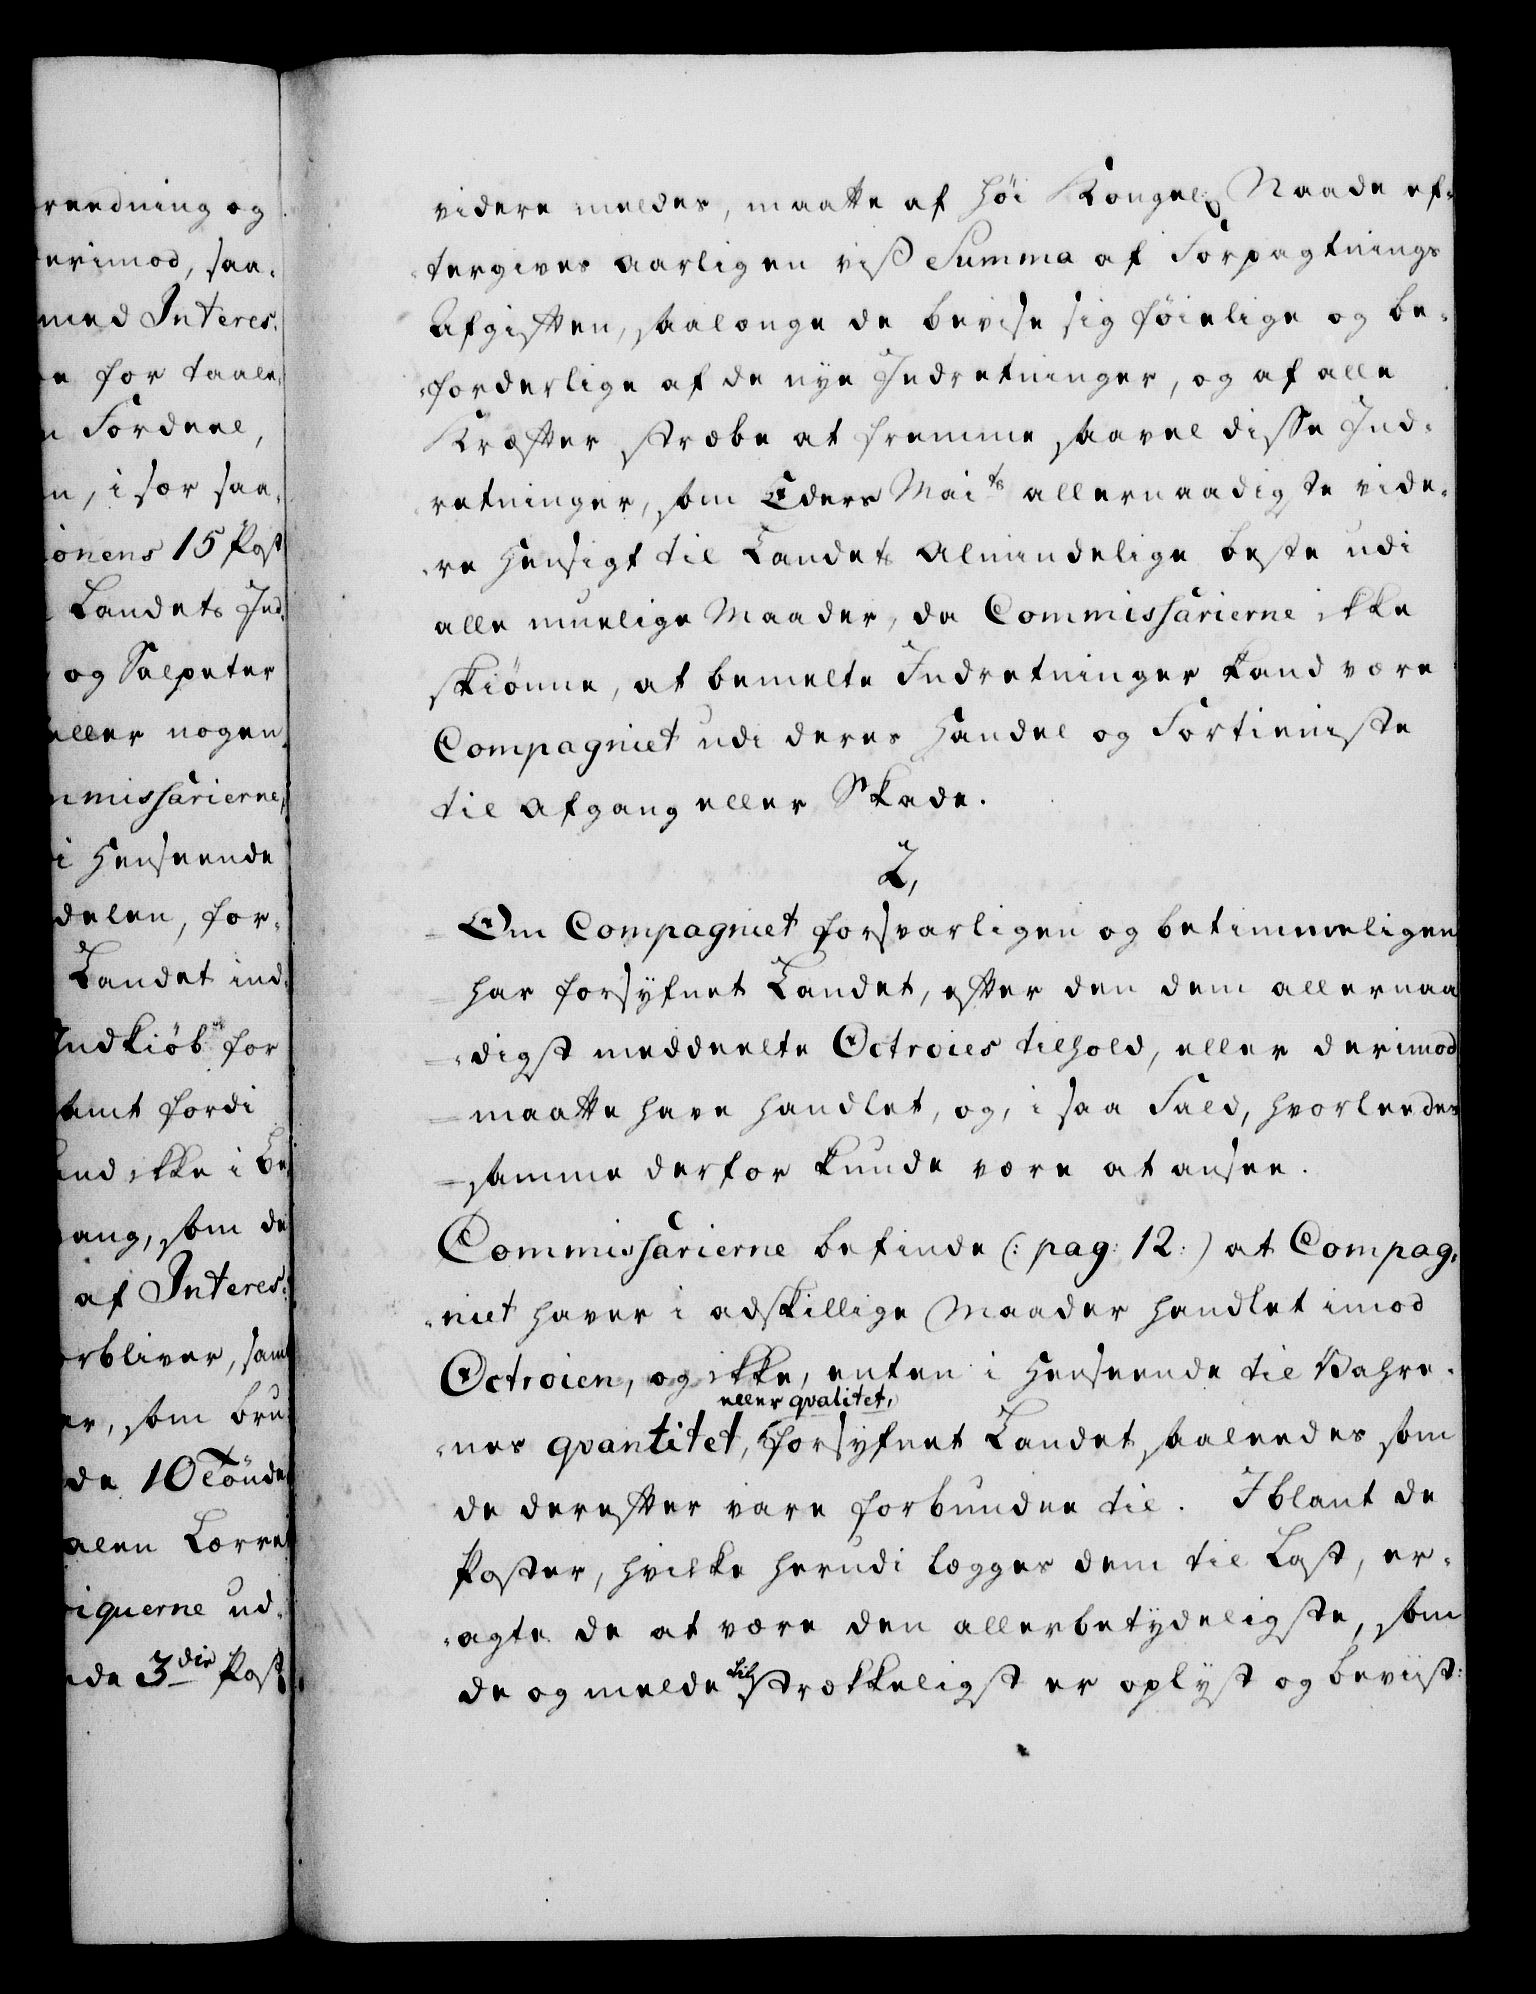 reedning og
erimod, saa-
med Interes-
e for taale-
n Fordeel,
n, i sær saa-
ionens 15 Post
Landets Ind-
og Salpeter
eller nogen
mmissarierne,
i Henseende
delen, for-
Landet ind-
Indkiöb for
samt fordi
and ikke i Be
gang, som de
af Interes-
orbliver, samt
er, som bru-
de 10 Tönde
alen Lærre
riquerne ud-
nde 3die Post
videre meldes, maatte af høi Kongel: Naade ef-
tergives aarligen viß Summa af Forpagtnings
Afgiften, saalænge de bevise sig føielige og be-
forderlige af de nye Indretninger, og af alle
Kræfter stræbe at fremme saavel disse Ind-
retninger, som Eders Maits allernaadigste vide-
re Hensigt til Landets Almindelige beste udi
alle muelige Maader, da Commissarierne ikke
skiönne, at bemelte Indretninger kand være
Compagniet udi deres Handel og Fortieniste
til Afgang eller Skade.
2,
Om Compagniet forsvarligen og betimmeligen
har forsÿfnet Landet, efter den dem allernaa
digst meddeelte Octroies tilhold, eller derimod
maatte have handlet, og, i saa Fald, hvorleedes
samme derfor kunde være at ansee.
Commissarierne befinde (: pag: 12:) at Compag-
niet haver i adskillige Maader handlet imod
Octroien, og ikke, enten i Henseende til Vahre-
eller qvalitet,
nes qvantitet, forsÿfnet Landet saaleedes som
de derefter vare forbunden til. Iblant de
Poster, hvilke herudi lægges dem til Last, er-
agte de at være den allerbetÿdeligste, som
de og melde tilstrækkeligst er oplÿst og beviist: